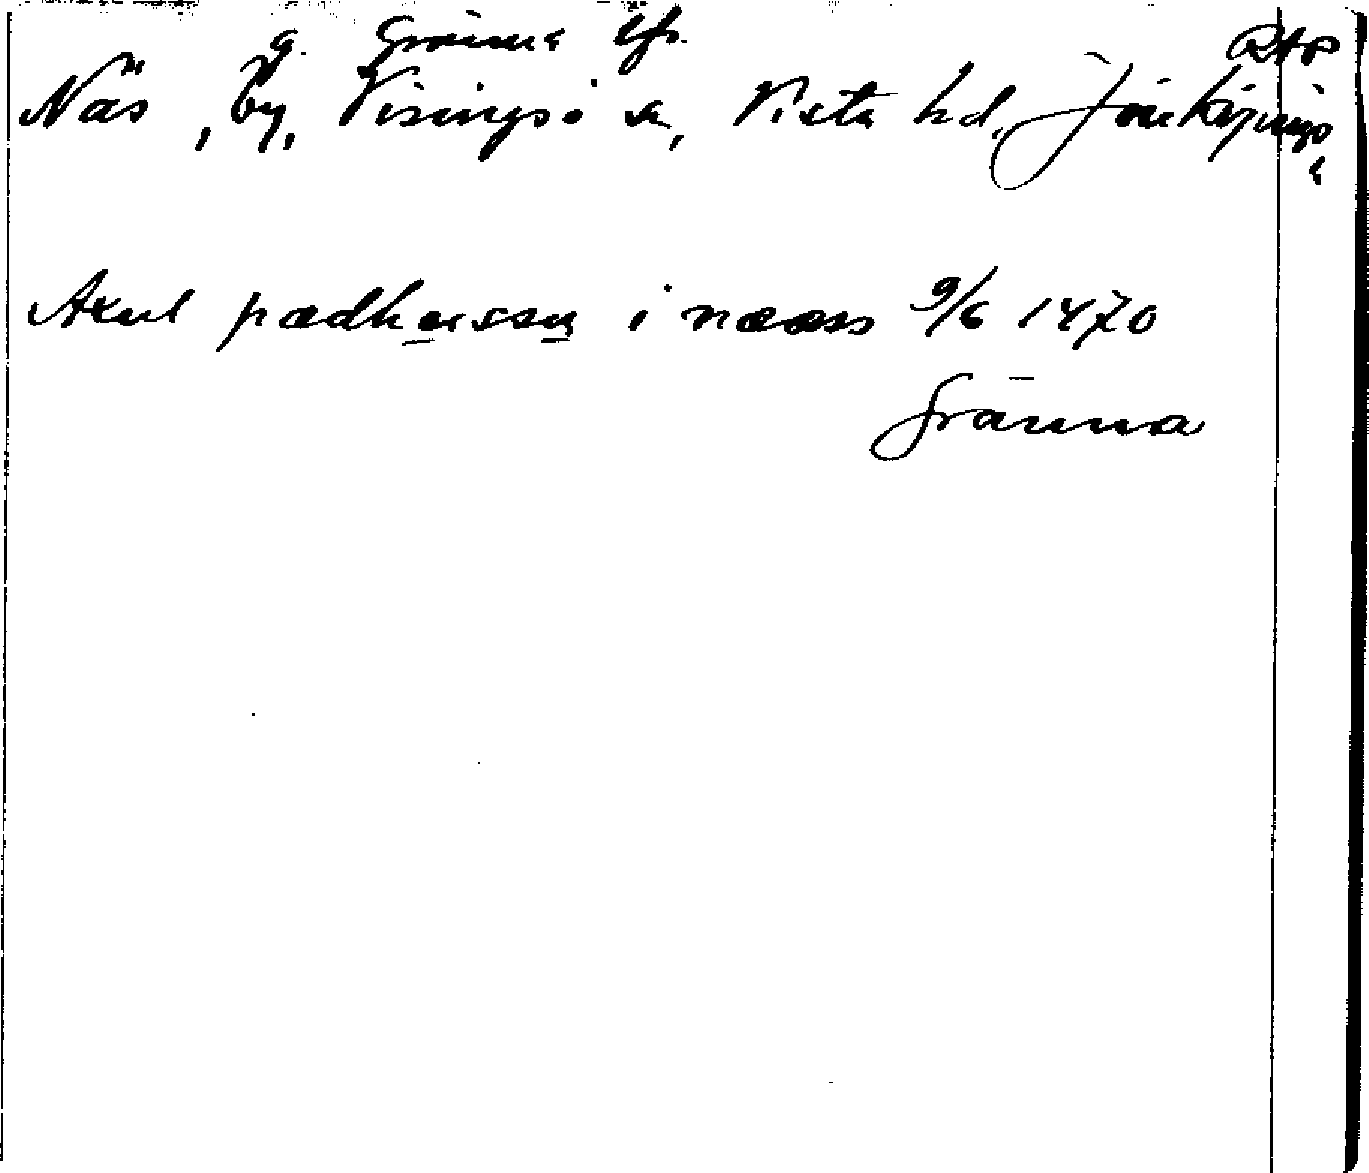 g. Gränna lfs. RAP
Näs, by, Visingsö sn, Vista hd, Jönköpings
l
Axul pædherssøn i næææss 9/6 1470
Gränna